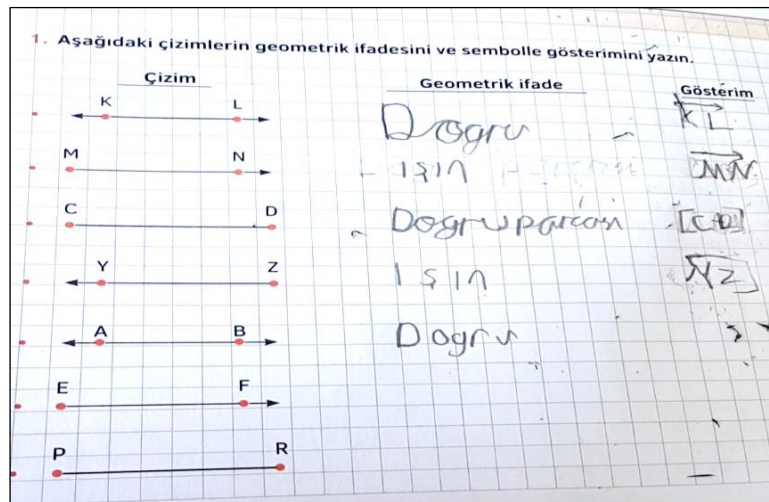 1. Aşağıdaki çizimlerin geometrik ifadesini ve sembolle gösterimini yazın.
Çizim Geometrik ifade Gösterim
K L Dogru KL
M N ışın MN
C D Dogruparcası [CD]
Y Z Işın YZ
A B Dogru
E F
P R